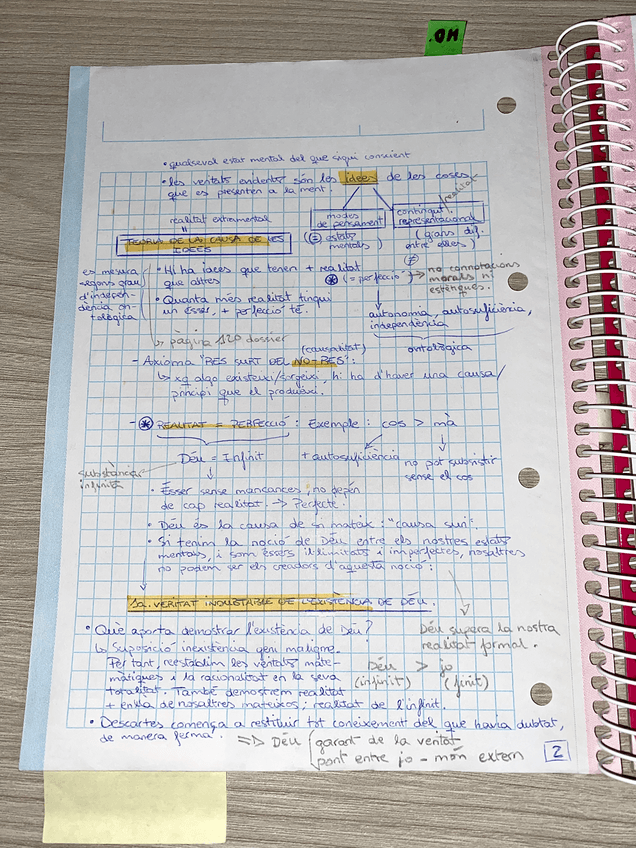 .OH
• qualsevol estat mental del que sigui conscient
• les veritats evidents són les idees de les coses
que es presenten a la ment.
realitat
realitat extramental
"
TEORIA DE LA CAUSA DE LES
IDEES
modes
de pensament
(= estats
mentals)
contingut
representacional
(grans dif.
entre elles)
(≠)
es mesura
segons grau
d'indepen-
dència on-
tològica
• Hi ha idees que tenen + realitat
que altres
⊛ (= perfecció) → no connotacions
morals ni
estètiques.
• Quanta més realitat tingui
un ésser, + perfecció té.
autonomia, autosuficiència,
independència
ontològica
↳ pàgina 120 dossier
(causalitat)
- Axioma "RES SURT DEL NO-RES":
↳ xq algo existeixi/sorgeixi, hi ha d'haver una causa/
principi que el produeixi.
- ⊛ REALITAT = PERFECCIÓ : Exemple : cos > mà
Déu = Infinit
+ autosuficiència
no pot subsistir
sense el cos
substància
infinita
• Ésser sense mancances; no depèn
de cap realitat → Perfecte.
• Déu és la causa de si mateix: "causa sui".
• Si tenim la noció de Déu entre els nostres estats
mentals, i som éssers il·limitats i imperfectes, nosaltres
no podem ser els creadors d'aquesta noció:
2a. VERITAT INQÜESTIONABLE DE L'EXISTÈNCIA DE DÉU.
• Què aporta demostrar l'existència de Déu?
↳ Suposició inexistència geni maligne.
Per tant, reestablim les veritats mate-
màtiques i la racionalitat en la seva
totalitat. També demostrem realitat
+ enllà de nosaltres mateixos; realitat de l'infinit.
Déu supera la nostra
realitat formal.
Déu > jo
(infinit) (finit)
• Descartes comença a restituir tot coneixement del que havia dubtat,
de manera ferma.
=> Déu garant de la veritat
pont entre jo - món extern
2